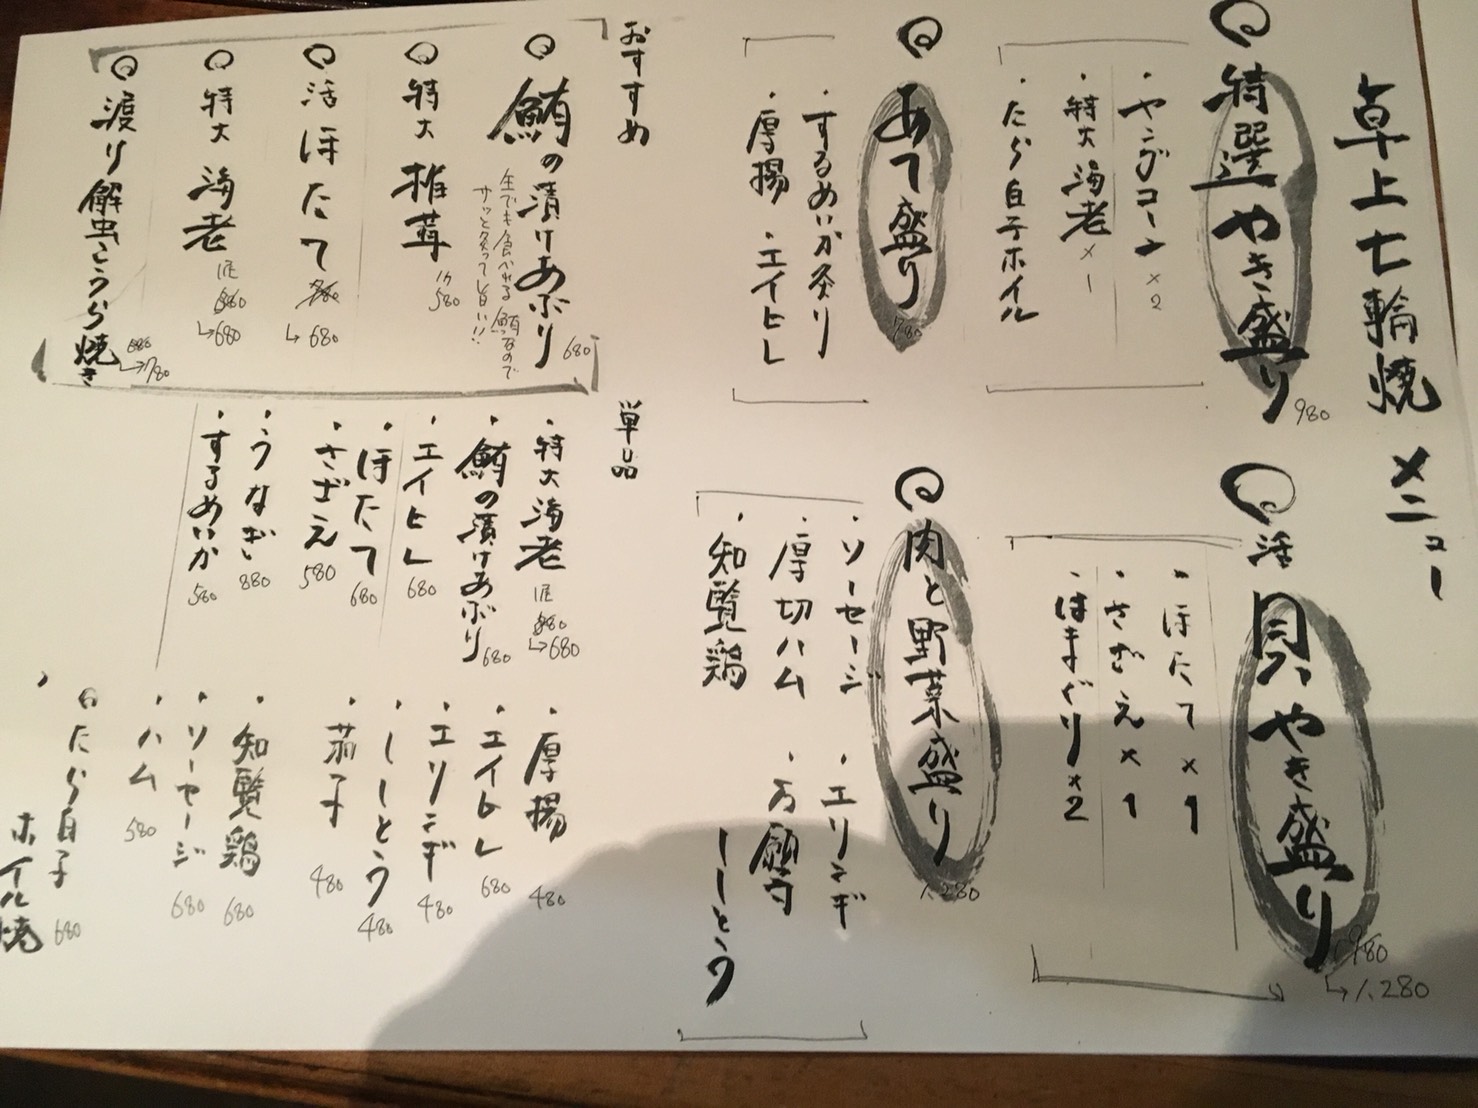 卓上七輪焼 メニュー
特選 やき盛り 980
・ヤングコーン ×2
・特大海老 ×1
・たら白子ホイル
活 貝やき盛り 980
↳1,280
・ほたて ×1
・さざえ ×1
・はまぐり ×2
あて盛り 780
・するめいか炙り
・厚揚 ・エイヒレ
肉と野菜盛り 1,280
・ソーセージ ・エリンギ
・厚切ハム ・万願寺
・知覧鶏 ししとう
おすすめ
鮪の漬けあぶり 680
生でも食べれる鮪なので
サッと炙って旨い!!
特大 椎茸 580
活 ほたて
↳ 680
特大 海老
↳680
渡り蟹こうら焼き
↳780
単品
・特大海老
↳680
・鮪の漬けあぶり 680
・エイヒレ 680
・ほたて 680
・さざえ 580
・うなぎ 880
・するめいか 580
・厚揚 480
・エイヒレ 680
・エリンギ 480
・ししとう 480
・茄子 480
・知覧鶏 680
・ソーセージ 680
・ハム 580
・たら白子 680
ホイル焼